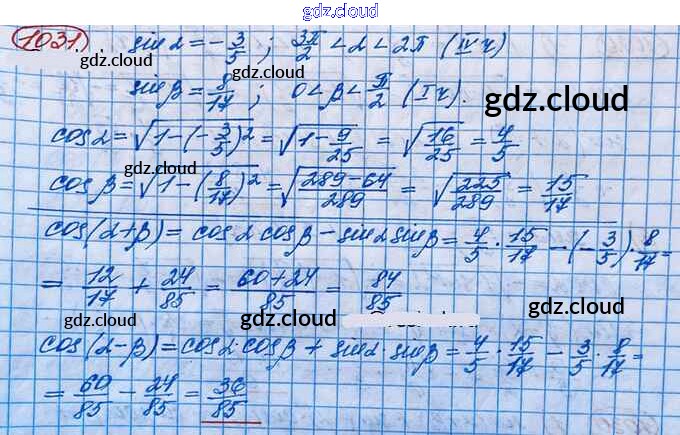 gdz.cloud
1031). sin α = -3/5 ; 3π/2 < α < 2π (IV ч)
gdz.cloud gdz.cloud
sin β = 8/17 ; 0 < β < π/2 (I ч).
gdz.cloud
cos α = √(1-(-3/5)²) = √(1-9/25) = √(16/25) = 4/5
gdz.cloud
cos β = √(1-(8/17)²) = √((289-64)/289) = √(225/289) = 15/17
gdz.cloud
cos(α+β) = cos α cos β - sin α sin β = 4/5 · 15/17 - (-3/5) · 8/17 =
= 12/17 + 24/85 = (60+24)/85 = 84/85
gdz.cloud
gdz.cloud
cos(α-β) = cos α · cos β + sin α · sin β = 4/5 · 15/17 - 3/5 · 8/17 =
gdz.cloud
= 60/85 - 24/85 = 36/85
gdz.cloud